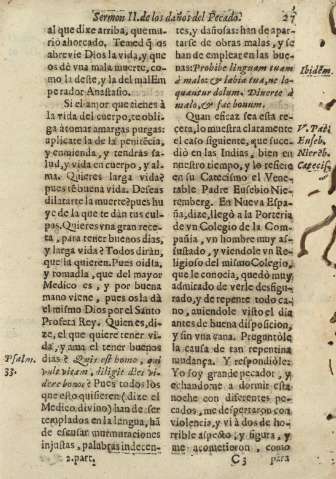 Sermon II. de los daños del Pecado. 27
al que dize arriba, que mu-
rió ahorcado. Temed q̃ os
abrevie Dios la vida, y que
os dè vna mala muerte, co-
mo la deste, y la del mal Em
perador Anastasio.
Si el amor que tienes à
la vida del cuerpo, te obli
ga à tomar amargas purgas:
aplicate la de la penitẽcia,
y enmienda, y tendràs sa-
lud, y vida en cuerpo, y al-
ma. Quieres larga vida?
pues tẽ buena vida. Deseas
dilatarte la muerte? pues hu
ye de la que te dàn tus cul-
pas. Quieres vna gran rece-
ta, para tener buenos dias,
y larga vida? Todos diràn,
que la quieren. Pues oidla,
y tomadla, que del mayor
Medico es, y por buena
mano viene, pues os la dà
el mismo Dios por el Santo
Profeta Rey. Quien es, di-
ze, el que quiere tener vi-
da, y ama el tener buenos
dias? Quis est homo, qui
vult vitam, diligit dies vi-
dere bonos? Pues todos los
que esto quisieren (dize el
Medico divino) han de ser
templados en la lengua, hã
de escusar murmuraciones
injustas, palabras indecen-
2. part.
Psalm.
33.
tes, y dañosas: han de apar-
tarse de obras malas, y se
han de emplear en las bue-
nas: Prohibe linguam tuam
à malo: & labia tua, ne lo-
quantur dolum. Diverte à
malo, & fac bonum.
Quan eficaz sea esta re-
ceta, lo muestra claramente
el caso siguiente, que suce-
diò en las Indias, bien en
nuestro tiempo, y lo refiere
en su Catecismo el Vene-
table Padre Eusebio Nie-
remberg. En Nueva Espa-
ña, dize, llegò a la Porteria
de vn Colegio de la Com-
pañia, vn hombre muy as-
sustado, y viendole vn Re-
ligioso del mismo Colegio,
que le conocia, quedò muy
admirado de verle desfigu-
rado, y de repente todo ca-
no, aviendole visto el dia
antes de buena disposicion,
y sin vna cana. Preguntòle
la causa de tan repentina
mudança. Y respondiòle:
Yo soy grande pecador, y
echandome a dormir esta
noche con diferentes pe-
cados, me despertaron con
violencia, y vi à dos de hor-
rible aspecto, y figura, y
me acometieron, como
C 3 para
Ibidem.
V. Pat.
Euseb.
Niercb.
Catecis.